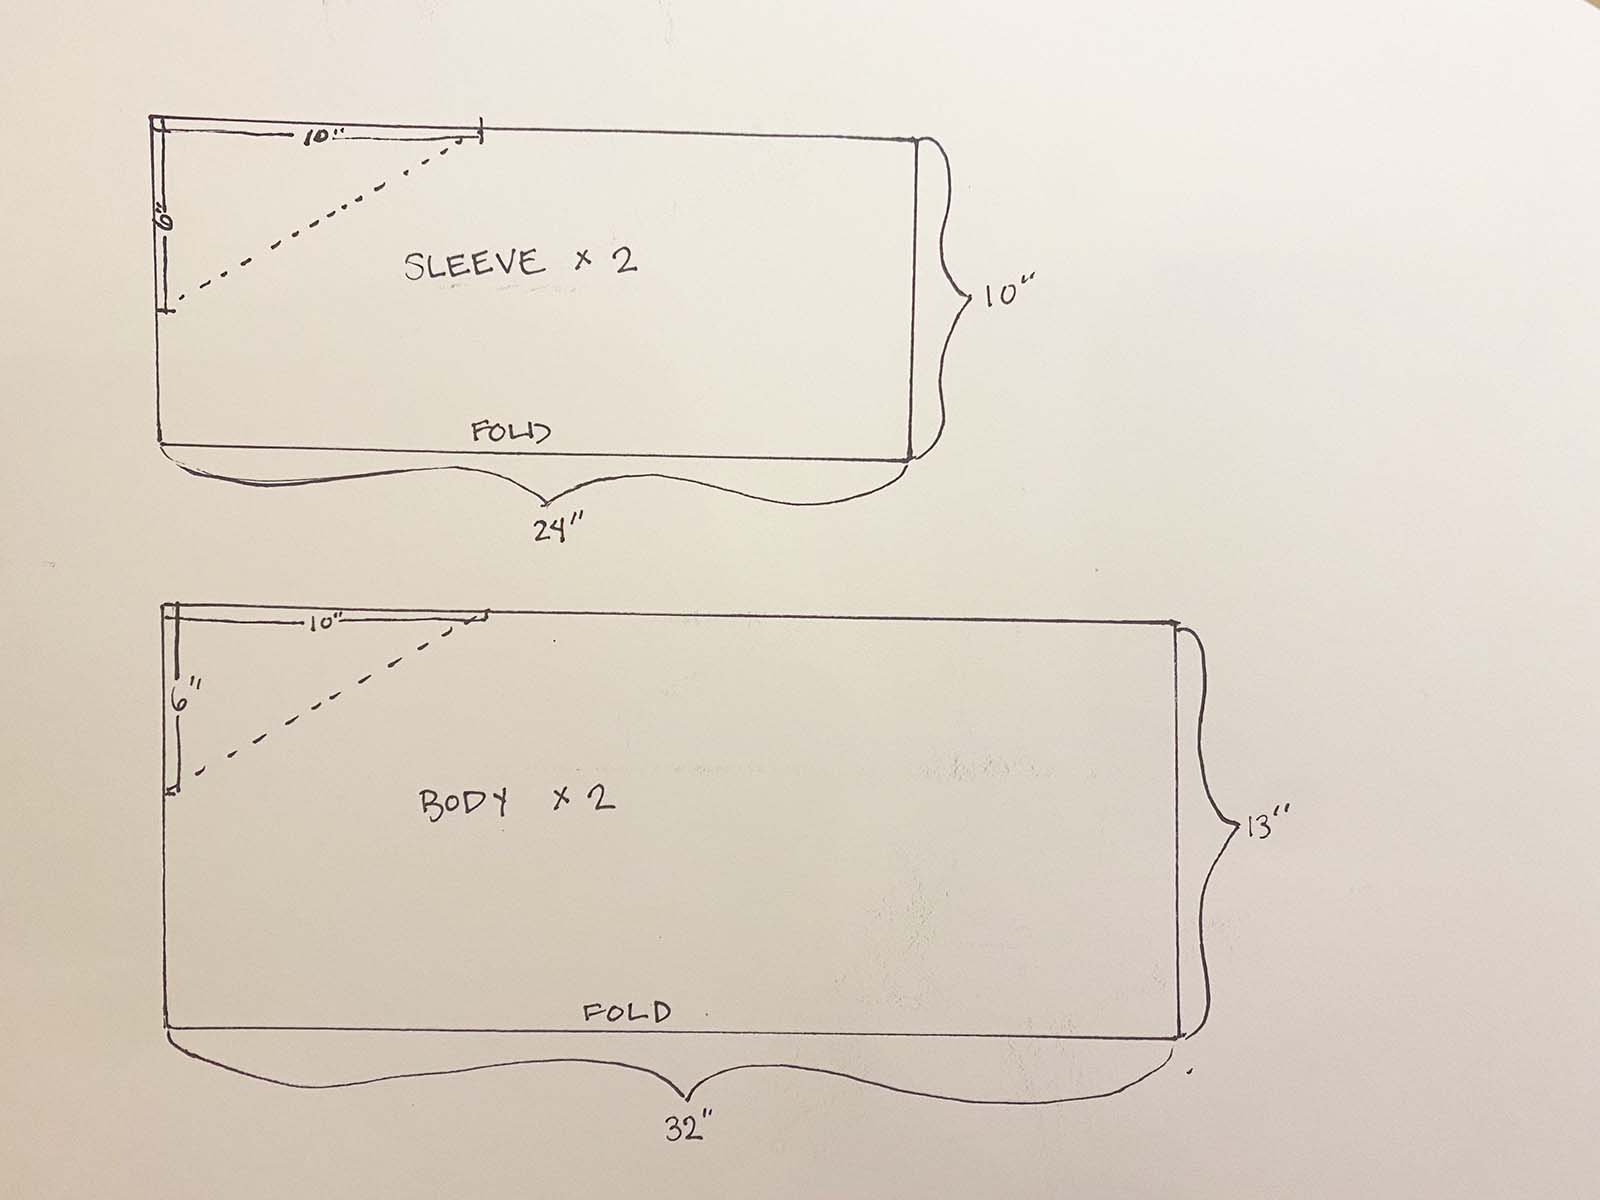 10"
6"
SLEEVE x 2
10"
FOLD
24"
10"
6"
BODY x 2
13"
FOLD
32"